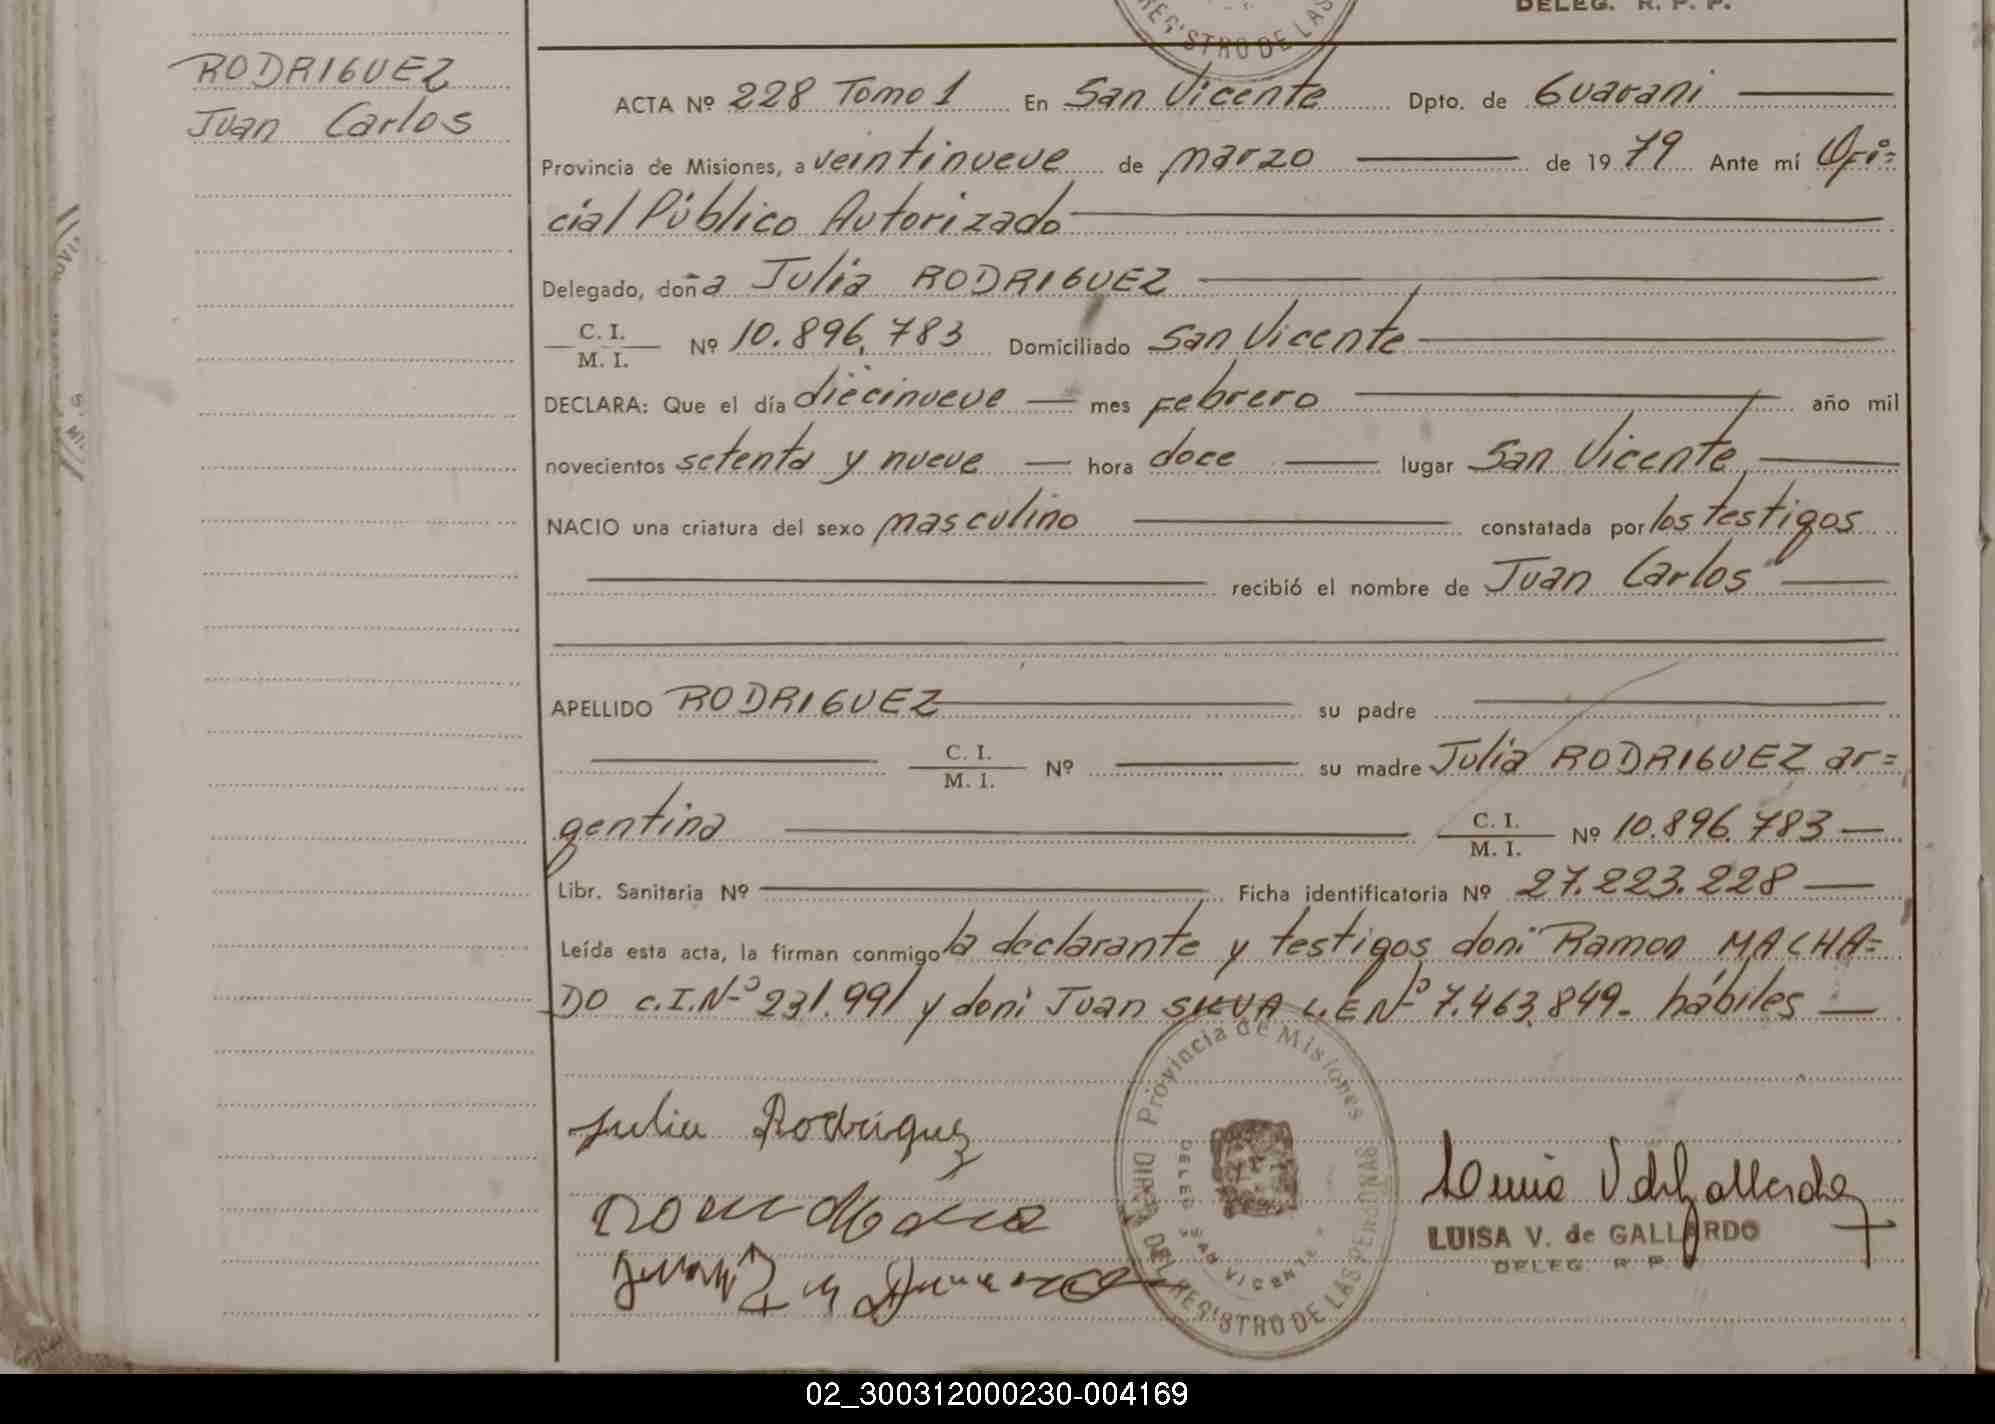 DELEG. R. P. P.
REGISTRO DE LAS
RODRIGUEZ
Juan Carlos
ACTA Nº 228 Tomo 1 En San Vicente Dpto. de Guarani
Provincia de Misiones, a veintinueve de marzo de 1979 Ante mí Ofi=
cial Público Autorizado
Delegado, doña Julia RODRIGUEZ
C. I.
M. I. Nº 10.896.783 Domiciliado San Vicente
DECLARA: Que el día diecinueve mes Febrero año mil
novecientos setenta y nueve hora doce lugar San Vicente
NACIO una criatura del sexo masculino constatada por los testigos
recibió el nombre de Juan Carlos
APELLIDO RODRIGUEZ su padre
C. I.
M. I. Nº su madre Julia RODRIGUEZ ar=
gentina C. I.
M. I. Nº 10.896.783
Libr. Sanitaria Nº Ficha identificatoria Nº 27.223.228
Leída esta acta, la firman conmigo la declarante y testigos don: Ramon MACHA=
DO C.I.Nº 231.991 y don: Juan SILVA L.E Nº 7.463.849. hábiles
Julia Rodriguez
Provincia de Misiones
DIR. DEL REGISTRO DE LAS PERSONAS
DELEG. SAN VICENTE
LUISA V. de GALLARDO
DELEG. R. P. P.
02_300312000230-004169